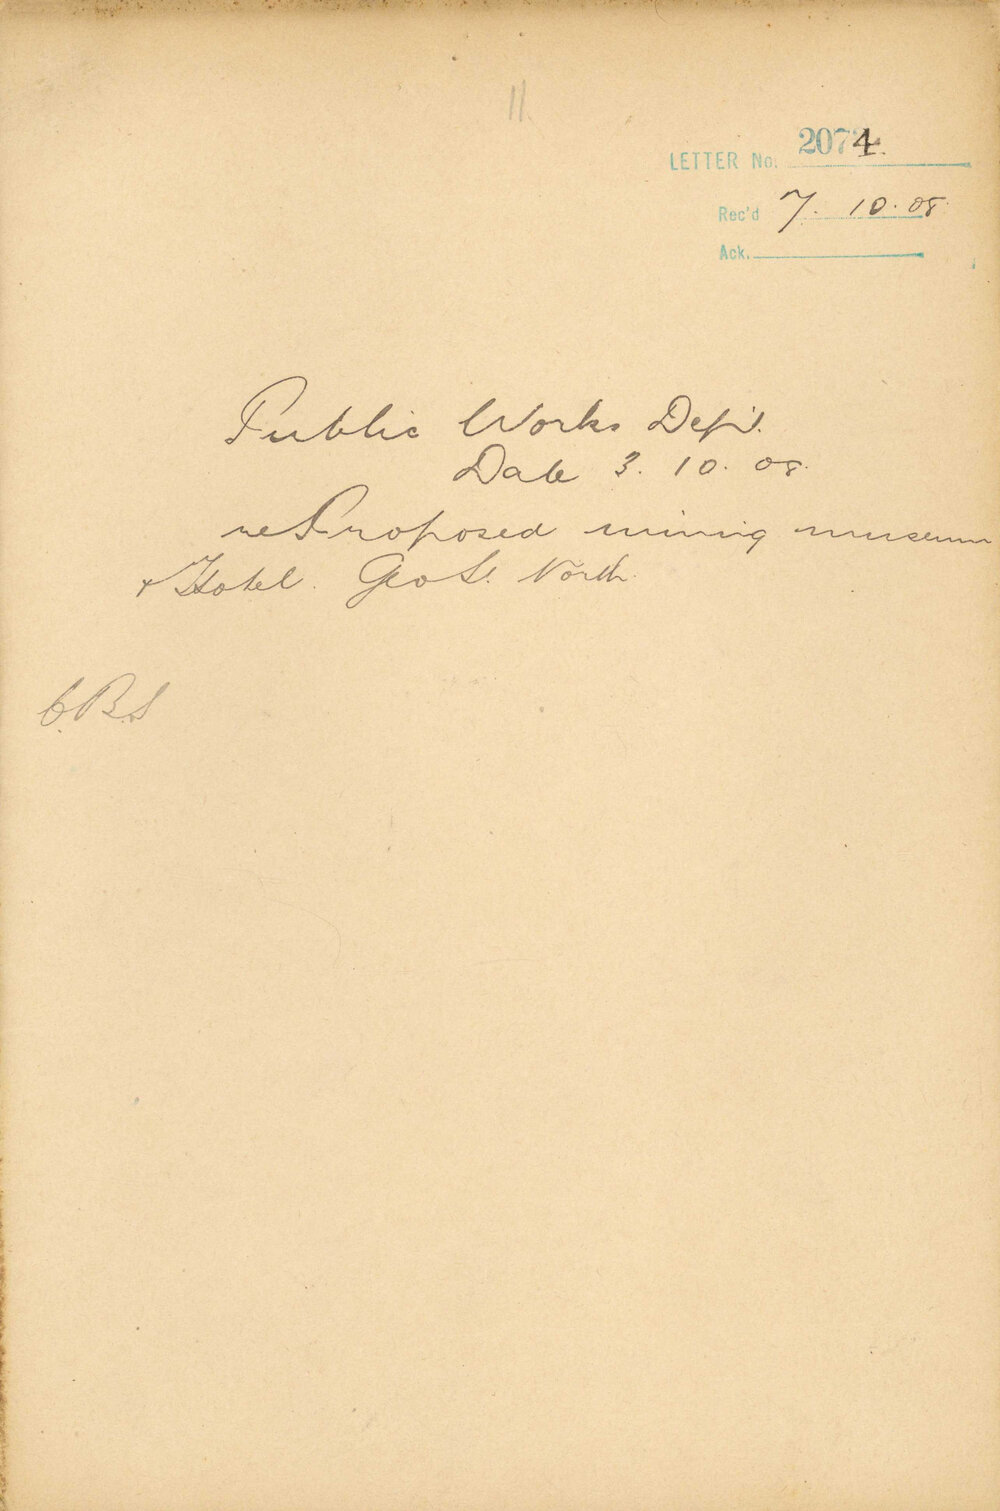 11
LETTER No. 2074.
Rec'd 7. 10. 08.
Ack.
Public Works Dep't.
Date 3. 10. 08.
re Proposed mining museum
& Hotel. Geo St. North.
C.B.S